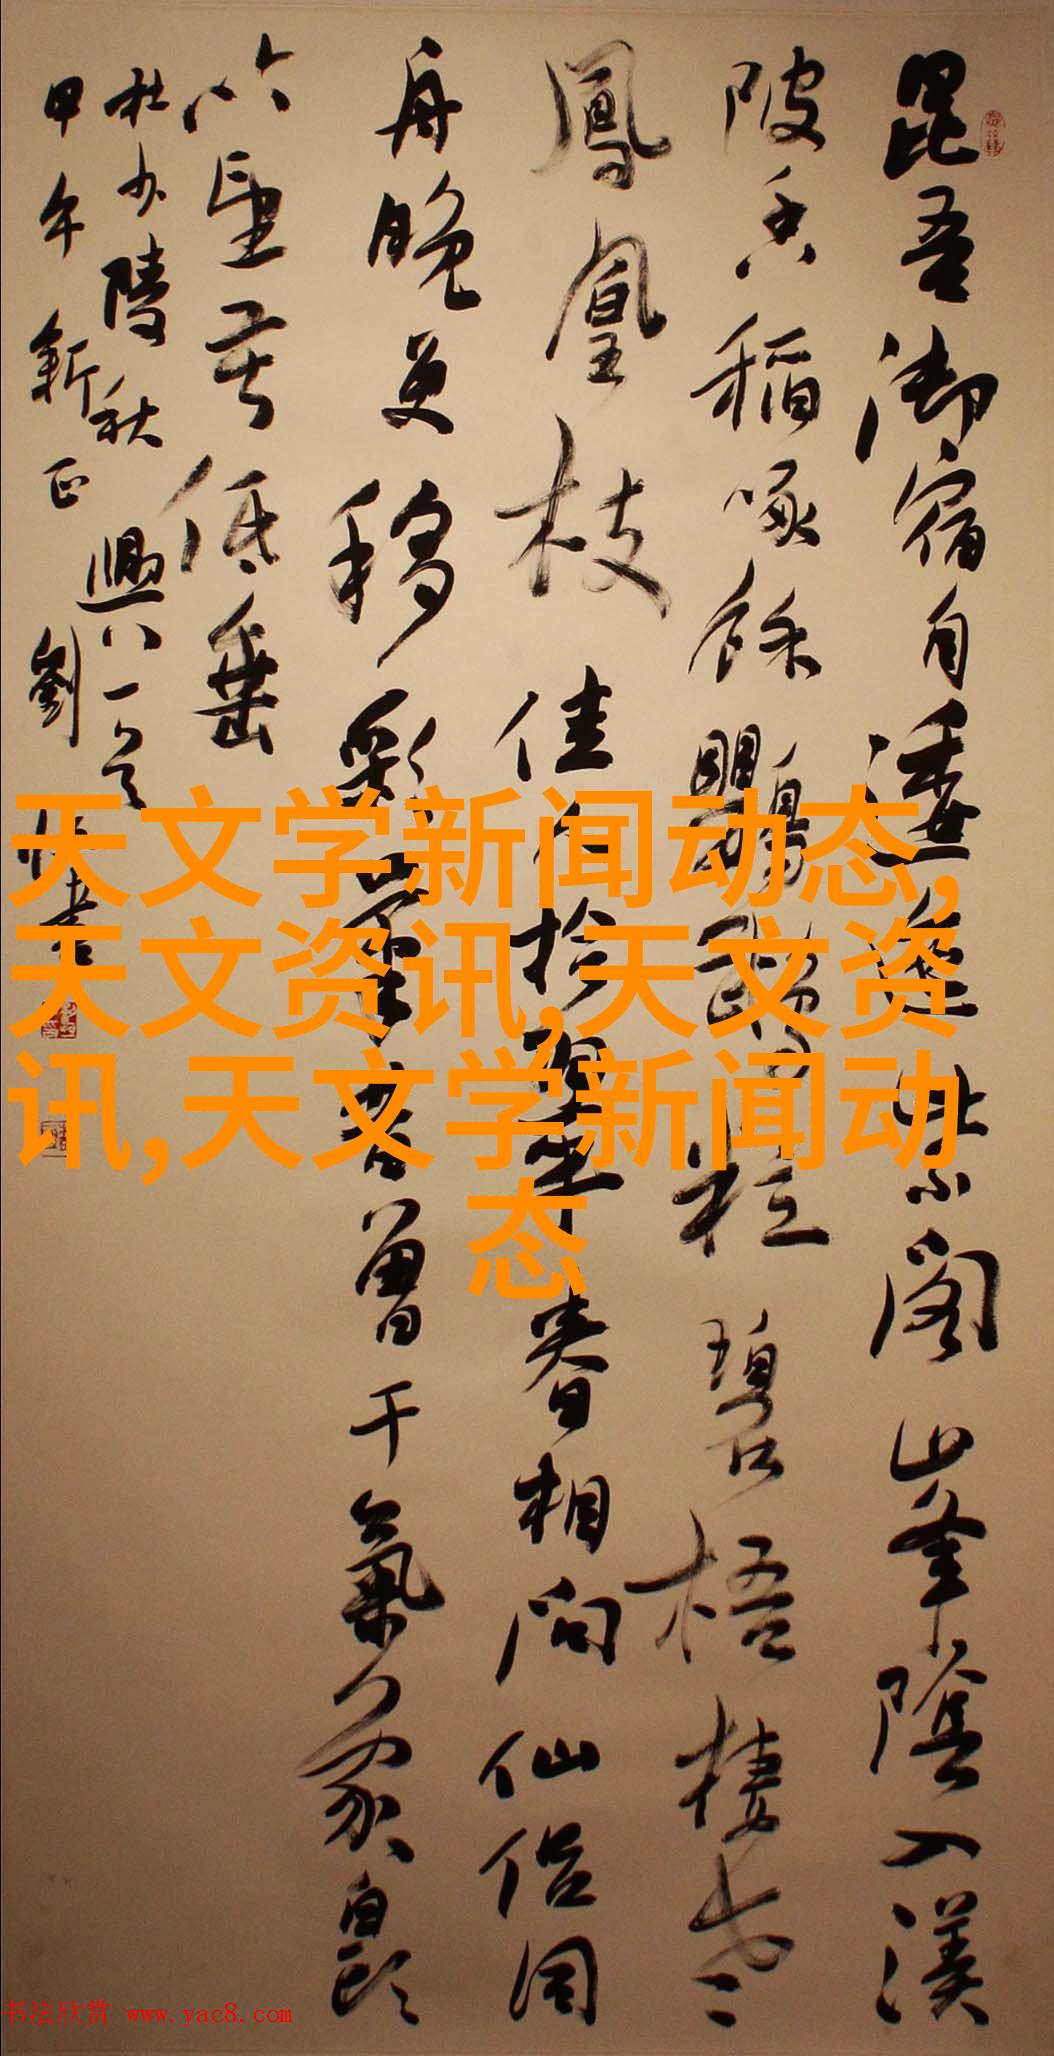 昆吾御宿自逶迤紫閣峯陰入渼
陂香稻啄餘鸚鵡粒碧梧棲老
鳳凰枝佳人拾翠春相問仙侣同
舟晚更移彩筆昔曾干氣象白頭
吟望苦低垂
杜少陵秋興八一首
甲午新正劉書
天文学新闻动态,
天文资讯,天文资
讯,天文学新闻动
态
书法欣赏 www.yac8.com